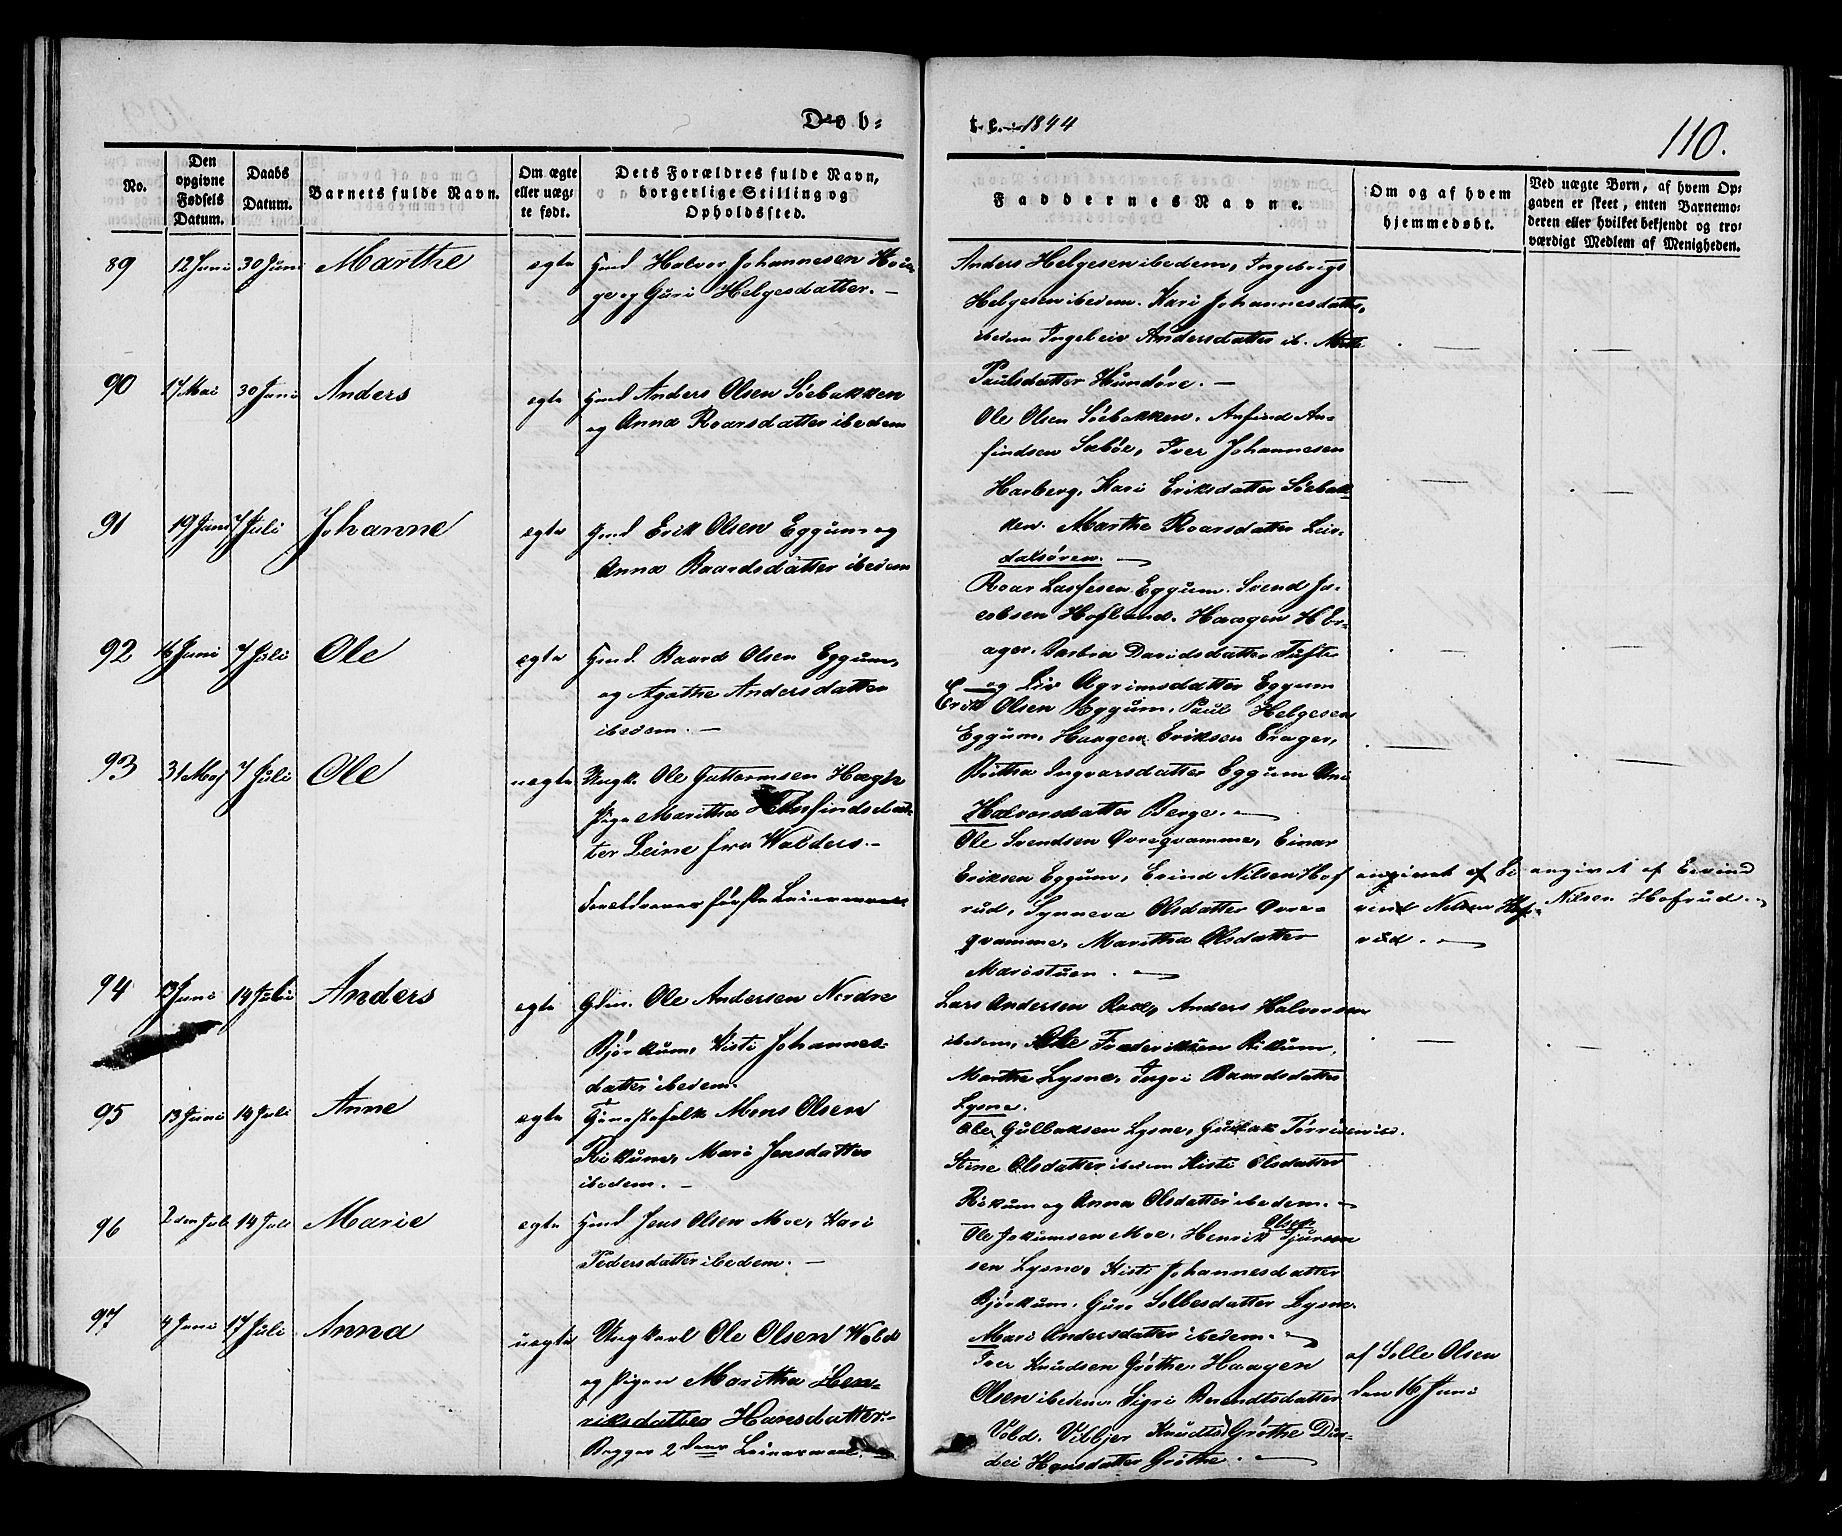 Døb-
te 1844
110.
No.
Den opgivne Fødsels Datum.
Daabs Datum.
Barnets fulde Navn.
Om ægte eller uægte født.
Dets Forældres fulde Navn, borgerlige Stilling og Opholdssted.
Faddernes Navne.
Om og af hvem hjemmedøbt.
Ved uægte Børn, af hvem Opgaven er skeet, enten Barnemoderen eller hvilket bekjendt og troværdigt Medlem af Menigheden.
89 12 Juni 30 Juni Marthe egte Hmd Halvor Johannesen
og Guri Helgesdatter. —
Anders Helgesen ibedem, Ingebrigt
Helgesen ibedem. Kari Johannesdatter
ibedem Ingeleiv Andersdatter ib.
Paulsdatter Hundøre. —
90 17 Mai 30 Juni Anders egte Hmd Anders Olsen Söebakken
og Anna Roarsdatter ibedem
Ole Olsen Söebakken. Anfind An-
findsen Sæböe, Iver Johannesen
Hauberg, Kari Eriksdatter Söebak
ken. Marthe Roarsdatter Leir-
dalsören. —
91 19 Juni 7 Juli Johanne egte Hmd Erik Olsen Eggum og
Anna Baardsdatter ibedem
Roar Lassesen Eggum. Svend Ja-
cobsen Hofland. Haagen H Er-
ager. Davidsdatter Tufte
og Liv Agrimsdatter Eggum
92 16 Juni 7 Juli Ole egte Hmd. Baard Olsen Eggum,
og Agathe Andersdatter
ibedem. —
Erik Olsen Eggum, Paul Helgesen
Eggum. Haagen Eriksen Erager,
Brita Ingvarsdatter Eggum
Halvorsdatter Berge. —
93 31 Maj 7 Juli Ole uegte Ungk. Ole Guttormsen Hægh
Pige Maritha findsdat-
ter Leine fra Walders. —
Forældrenes første Leiermaal
Ole Svendsen Øvreqvamme, Einar
Eriksen Eggum, Erind Nilsen Hof
rud, Synneva Olsdatter Øvre-
qvamme, Maritha Olsdatter
Maristuen. —
angivet af Ei
vind Nilsen Hof-
rud. —
angivet af Eivind
Nilsen Hofrud. —
94 13 Juni 14 Juli Anders egte Gdm. Ole Andersen Nordre
Bjørkum, Kisti Johannes-
datter ibedem.
Lars Andersen Øvre, Anders Halvorsen
ibedem, Ole Frederiksen Rikum,
Marthe Lysne, Ingri Baardsdatter
Lysne.
95 13 Juni 14 Juli Anne egte Tjenestefolk Mons Olsen
Rikum, Mari Jensdatter
ibedem. —
Ole Gulbaksen Lysne, Gulbak
Stine Olsdatter ibedem Kisti Olsdatter
Rikum og Anna Olsdatter ibedem. —
96 2den Juli 14 Juli Marie egte Hmd Jens Olsen Moe, Kari
Pedersdatter ibedem. —
Ole Jokumsen Moe, Henrik Olsen
sen Lysne, Kisti Johannesdatter
Bjørkum. Guri Solbesdatter Lysne.
Mari Andersdatter ibedem. —
97 4 Juni 17 Juli Anna uegte Ungkarl Ole Olsen Wold
og Pigen Maritha Hen-
riksdatter Hansdatter. —
Begges 2den Leiermaal. —
Iver Knudsen Gröthe, Haagen
Olsen ibedem, Sigri Berendtsdatter
Vold. Vilbjer Knudts Gröthe Dor-
dei Hansdatter Gröthe. —
af Solle Olsen
den 16 Juni